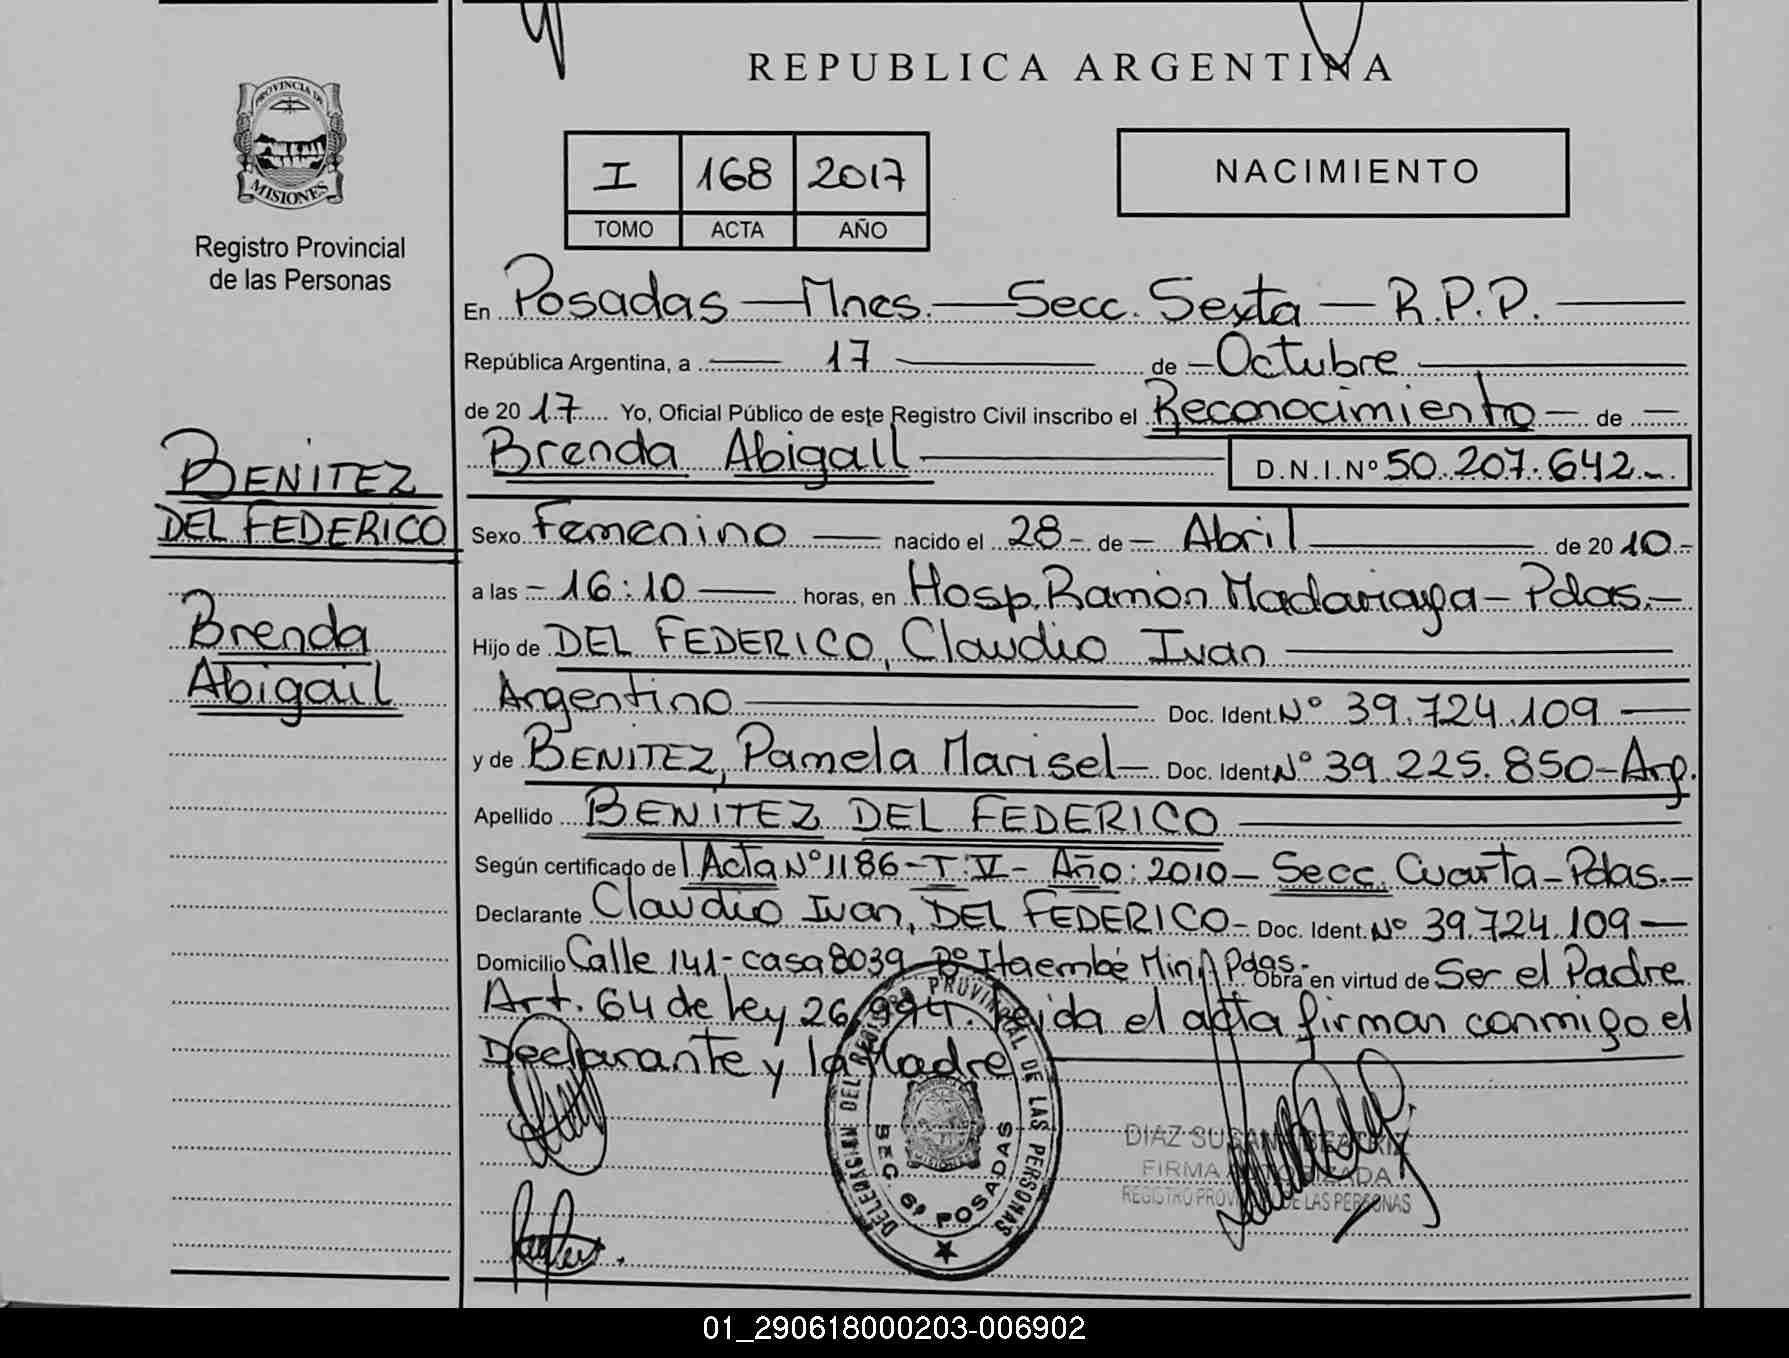 REPUBLICA ARGENTINA
PROVINCIA DE
MISIONES
Registro Provincial
de las Personas
I 168 2017
TOMO ACTA AÑO
NACIMIENTO
En Posadas — Mnes. — Secc. Sexta — R.P.P. —
República Argentina, a — 17 — de — Octubre —
de 20 17 Yo, Oficial Público de este Registro Civil inscribo el Reconocimiento — de —
Brenda Abigail — D.N.I.Nº 50.207.642.-
BENITEZ
DEL FEDERICO
Brenda
Abigail
Sexo Femenino — nacido el 28 - de — Abril — de 20 10.-
a las - 16:10 — horas, en Hosp. Ramón Madariaga - Pdas.-
Hijo de DEL FEDERICO, Claudio Ivan —
Argentino — Doc. Ident. Nº 39.724.109 —
y de BENITEZ, Pamela Marisel — Doc. Ident. Nº 39.225.850 - Arg.
Apellido BENITEZ DEL FEDERICO —
Según certificado de Acta Nº 1186 - T: V - Año: 2010 - Secc. Cuarta - Pdas.-
Declarante Claudio Ivan, DEL FEDERICO - Doc. Ident. Nº 39.724.109 —
Domicilio Calle 141 - casa 8039 Bº Itaembé Miní Pdas.- Obra en virtud de Ser el Padre
Art. 64 de ley 26.994. Leida el acta firman conmigo el
Declarante y la Madre —
DELEGACION DEL REGISTRO PROVINCIAL DE LAS PERSONAS
SEC 6ª POSADAS
DIAZ SUSANA BEATRIZ
FIRMA AUTORIZADA
REGISTRO PROVINCIAL DE LAS PERSONAS
01_290618000203-006902